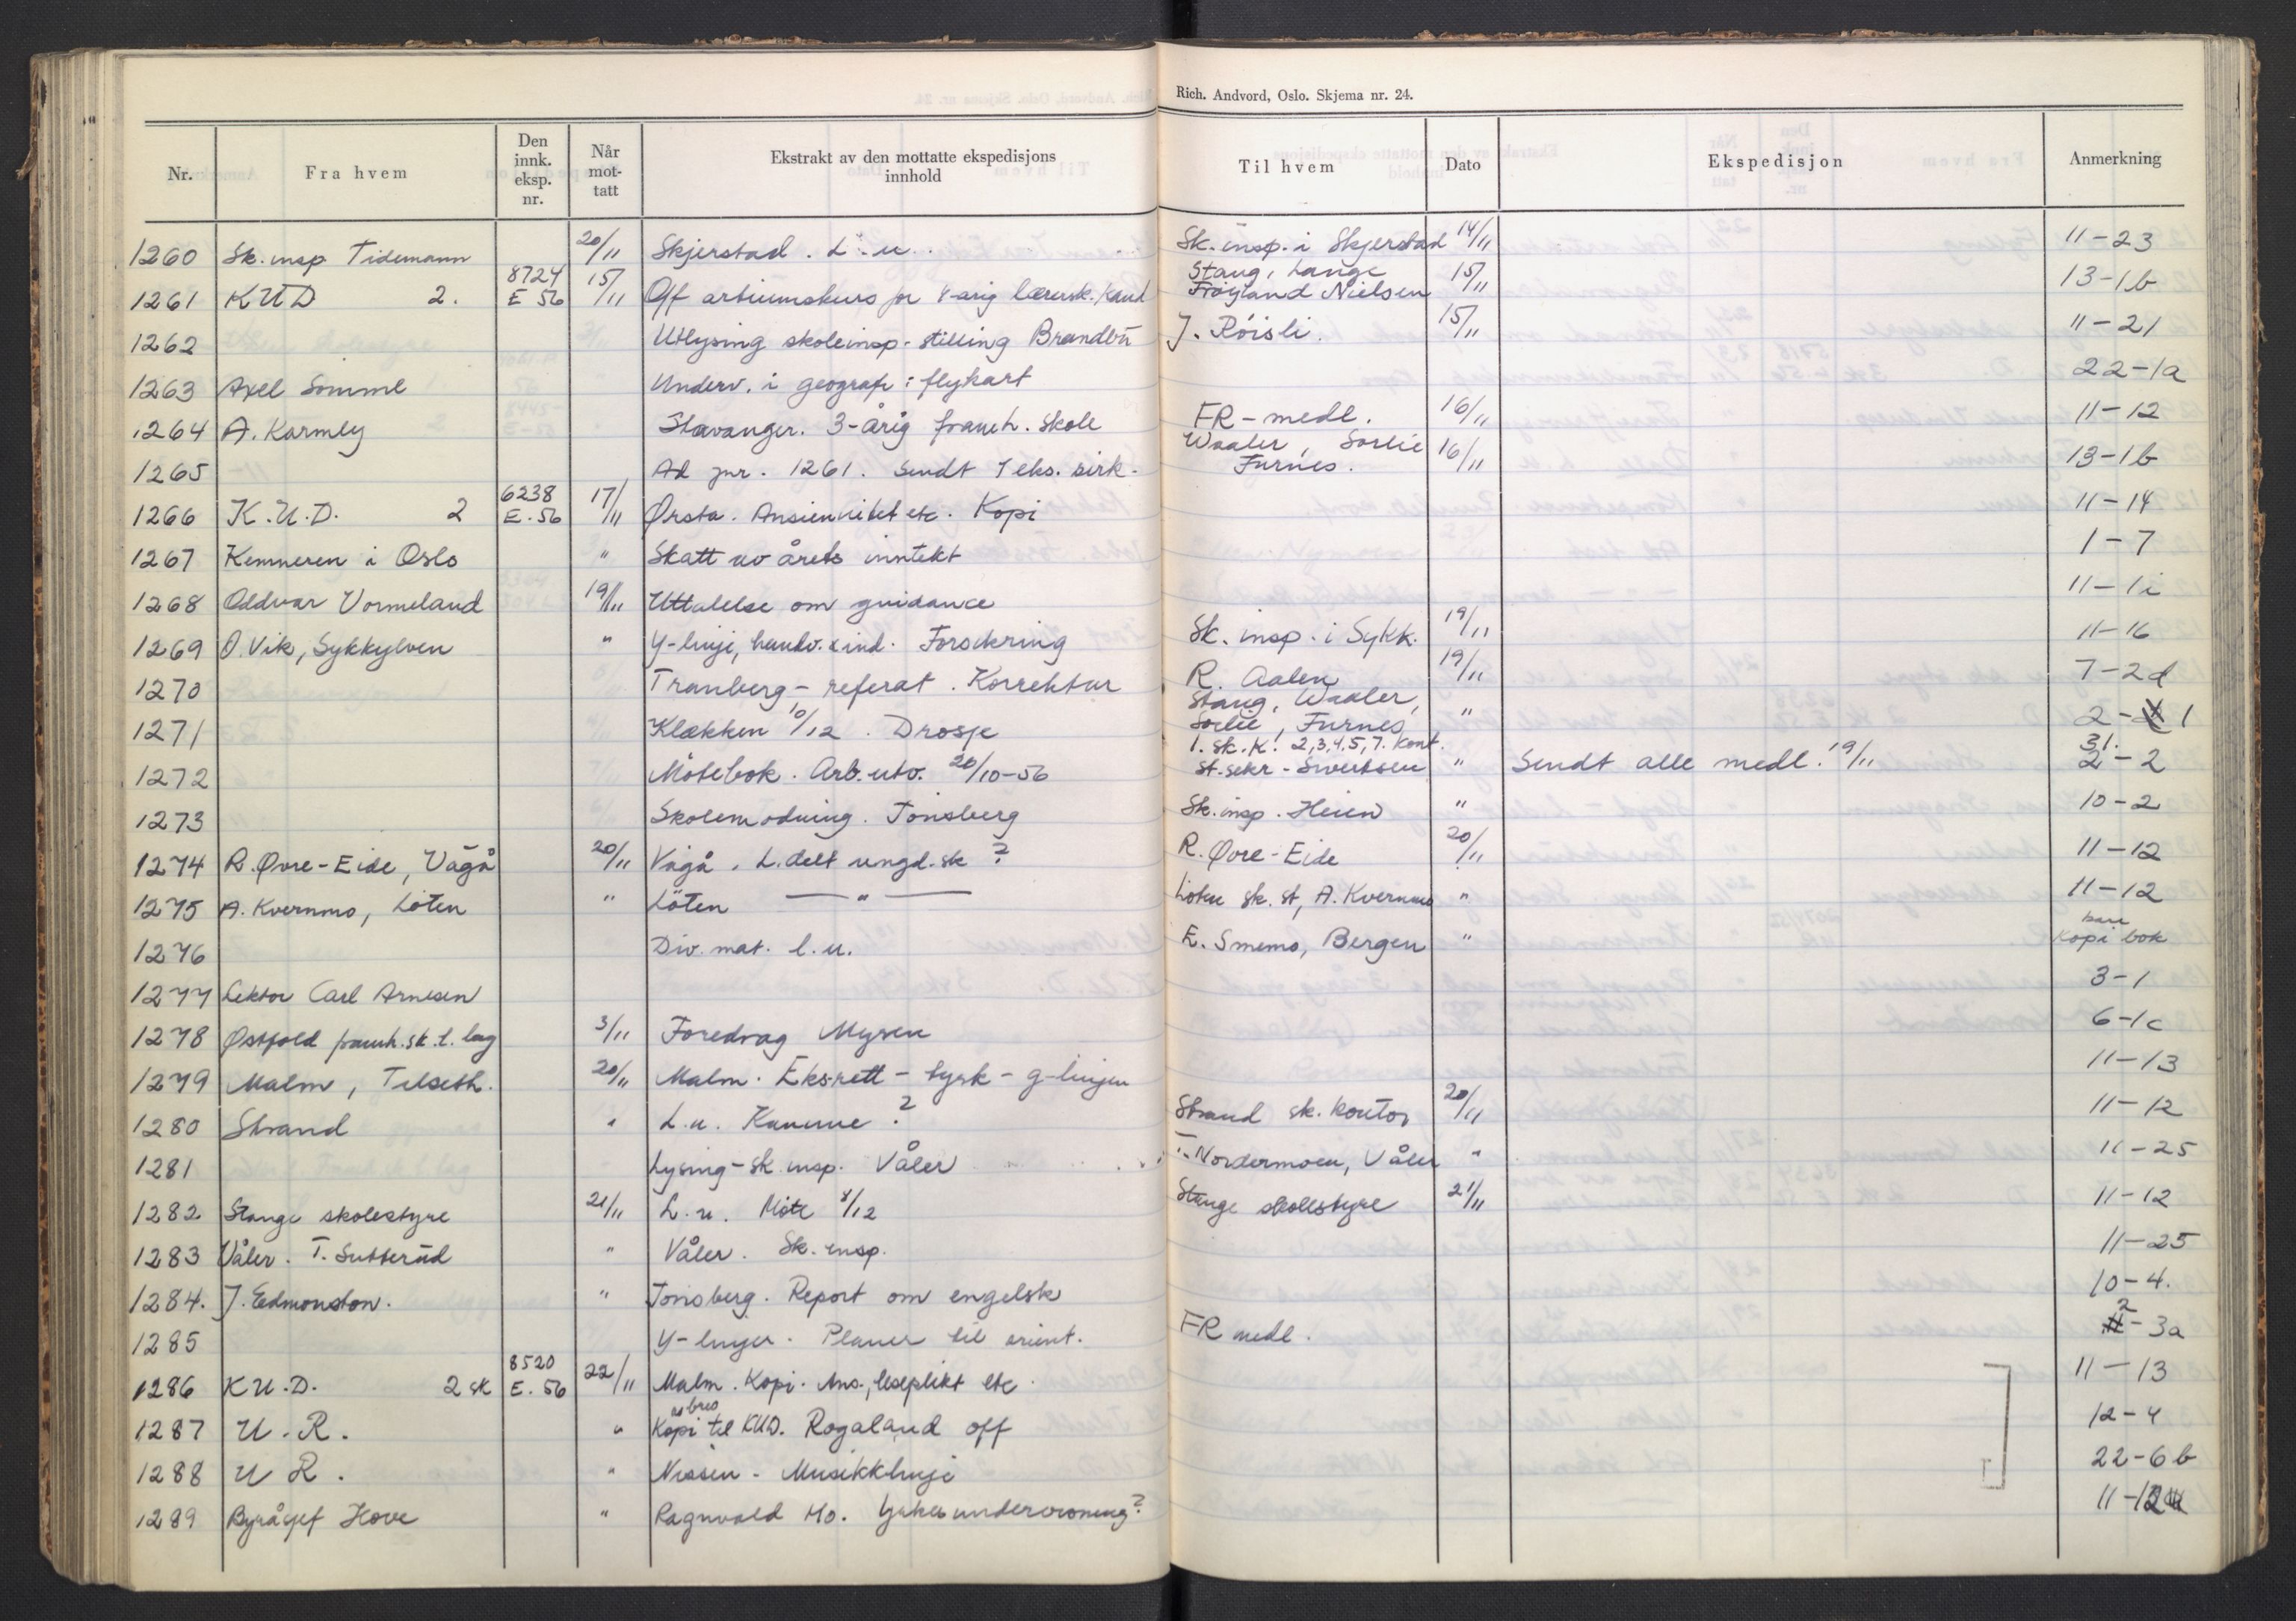 Rich. Andvord, Oslo. Skjema nr. 24.
Nr. Fra hvem Den innk. eksp. nr. Når mot-tatt Ekstrakt av den mottatte ekspedisjons innhold Til hvem Dato Ekspedisjon Anmerkning
1260 Sk. insp Tidemann 20/11 Skjerstad. L. u. Sk. insp. i Skjerstad 14/11 11-23
1261 KUD 2. 8724 E 56 15/11 Off artiumskurs for 4-årig lærersk. kand Stang, Lange Frøyland Nielsen 15/11 13-1b
1262 Utlysing skoleinsp-stilling Brandbu J. Röisli. 15/11 11-21
1263 Axel Somme Underv. i geografi: flykart 22-1a
1264 A. Karmly Stavanger. 3-årig framh. skole FR-medl. 16/11 11-12
1265 -"- Ad jnr. 1261. Sendt 1 eks. sirk. Waaler, Sorlie Furnes. 16/11 13-1b
1266 K.U.D. 2 6238 E.56 17/11 Ørsta. Ansiennitet etc. Kopi 11-14
1267 Kemneren i Oslo " Skatt av årets inntekt 1-7
1268 Oddvar Vormeland 19/11 Uttalelse om guidance 11-1i
1269 O. Vik, Sykkylven " Y-linje, handv. & ind. Forsikring Sk. insp. i Sykk. 19/11 11-16
1270 Tranberg-referat. Korrektur R. Aalen 19/11 7-2d
1271 Klækken 10/12. Drosje Stang, Waaler, Sorlie, Furnes " 2-1
1272 Mötebok. Arb.utv. 20/10-56 1. sk.k! 2,3,4,5,7. kont. St.sekr-Sivertsen " Sendt alle medl. 19/11 31. 2-2
1273 Skolemodning. Tönsberg Sk. insp. Heien " 10-2
1274 R. Øvre-Eide, Vågå 20/11 Vågå. L.delt ungd.sk? R. Øvre-Eide 20/11 11-12
1275 A. Kvernmo, Löten " Löten —"— Löten sk. st, A. Kvernmo " 11-12
1276 Div. mat. l.u. E. Smemo, Bergen " bare kopi bok
1277 Lektor Carl Arnesen 3-1
1278 Østfold framh.sk.l. lag 3/11 Foredrag Mysen 6-1c
1279 Malm, Tilseth. 20/11 Malm. Eks.rett-tysk-g-linjen 11-13
1280 Strand " L.u. Komme? Strand sk. kontor 20/11 11-12
1281 Lysing-sk insp. Våler T. Nordermoen, Våler " 11-25
1282 Stange skolestyre 21/11 L.u. Möte 4/12 Stange skolestyre 21/11 11-12
1283 Våler. T. Sutterud " Våler. Sk. insp. 11-25
1284. J. Edmonston. " Tönsberg. Report om engelsk 10-4.
1285 Y-linjer. Planer til orient. FR medl. 2-3a
1286 KU.D. 2 sk 8520 E.56 22/11 Malm. Kopi. Ans., leseplikt etc. 11-13
1287 U.R. " Kopi av brev til KUD. Rogaland off 12-4
1288 U R. " Nissen-Musikklinje 22-6b
1289 Byråsjef Hove " Ragnvald Mo. Yrkesundervisning? 11-12